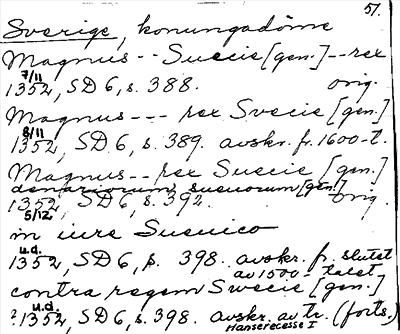 51.
Sverige, konungadöme
Magnus -- Suecie [gen.] -- rex
7/11
1352, SD 6, s. 388. orig.
Magnus --- rex Svecie [gen.]
8/11
1352, SD 6, s. 389. avskr. fr. 1600-t.
Magnus -- rex Suecie [gen.]
denariorum sueuorum [gen.]
1352, SD 6, s. 392. orig.
5/12
in iure Sueuico
u.d.
1352, SD 6, s. 398. avskr. fr. slutet
av 1500-talet
contra regem Swecie [gen.]
u.d.
?1352, SD 6, s. 398. avskr. av tr. (forts.)
Hanserecesse I